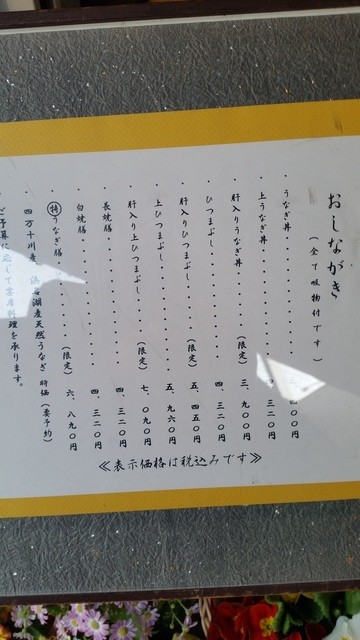 おしながき
(全て吸物付です)
・うなぎ丼・・・・・・・・・・〇〇円
・上うなぎ丼・・・・・・・・・三二〇円
・肝入りうなぎ丼・・・・(限定) 三、九〇〇円
・ひつまぶし・・・・・・・・・四、三二〇円
・肝入りひつまぶし・・・(限定) 五、四五〇円
・上ひつまぶし・・・・・・・・五、九六〇円
・肝入り上ひつまぶし・・(限定) 七、〇九〇円
・長焼膳・・・・・・・・・・・四、三二〇円
・白焼膳・・・・・・・・・・・四、三二〇円
・㊕うなぎ膳・・・・・・(限定) 六、八九〇円
・四万十川産、湖産天然うなぎ 時価(要予約)
・ご予算に応じて宴席料理を承ります。
≪表示価格は税込みです≫